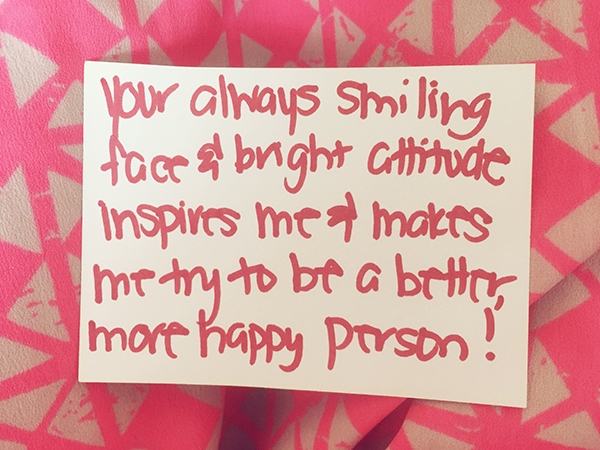 your always smiling
face & bright attitude
inspires me & makes
me try to be a better,
more happy person!